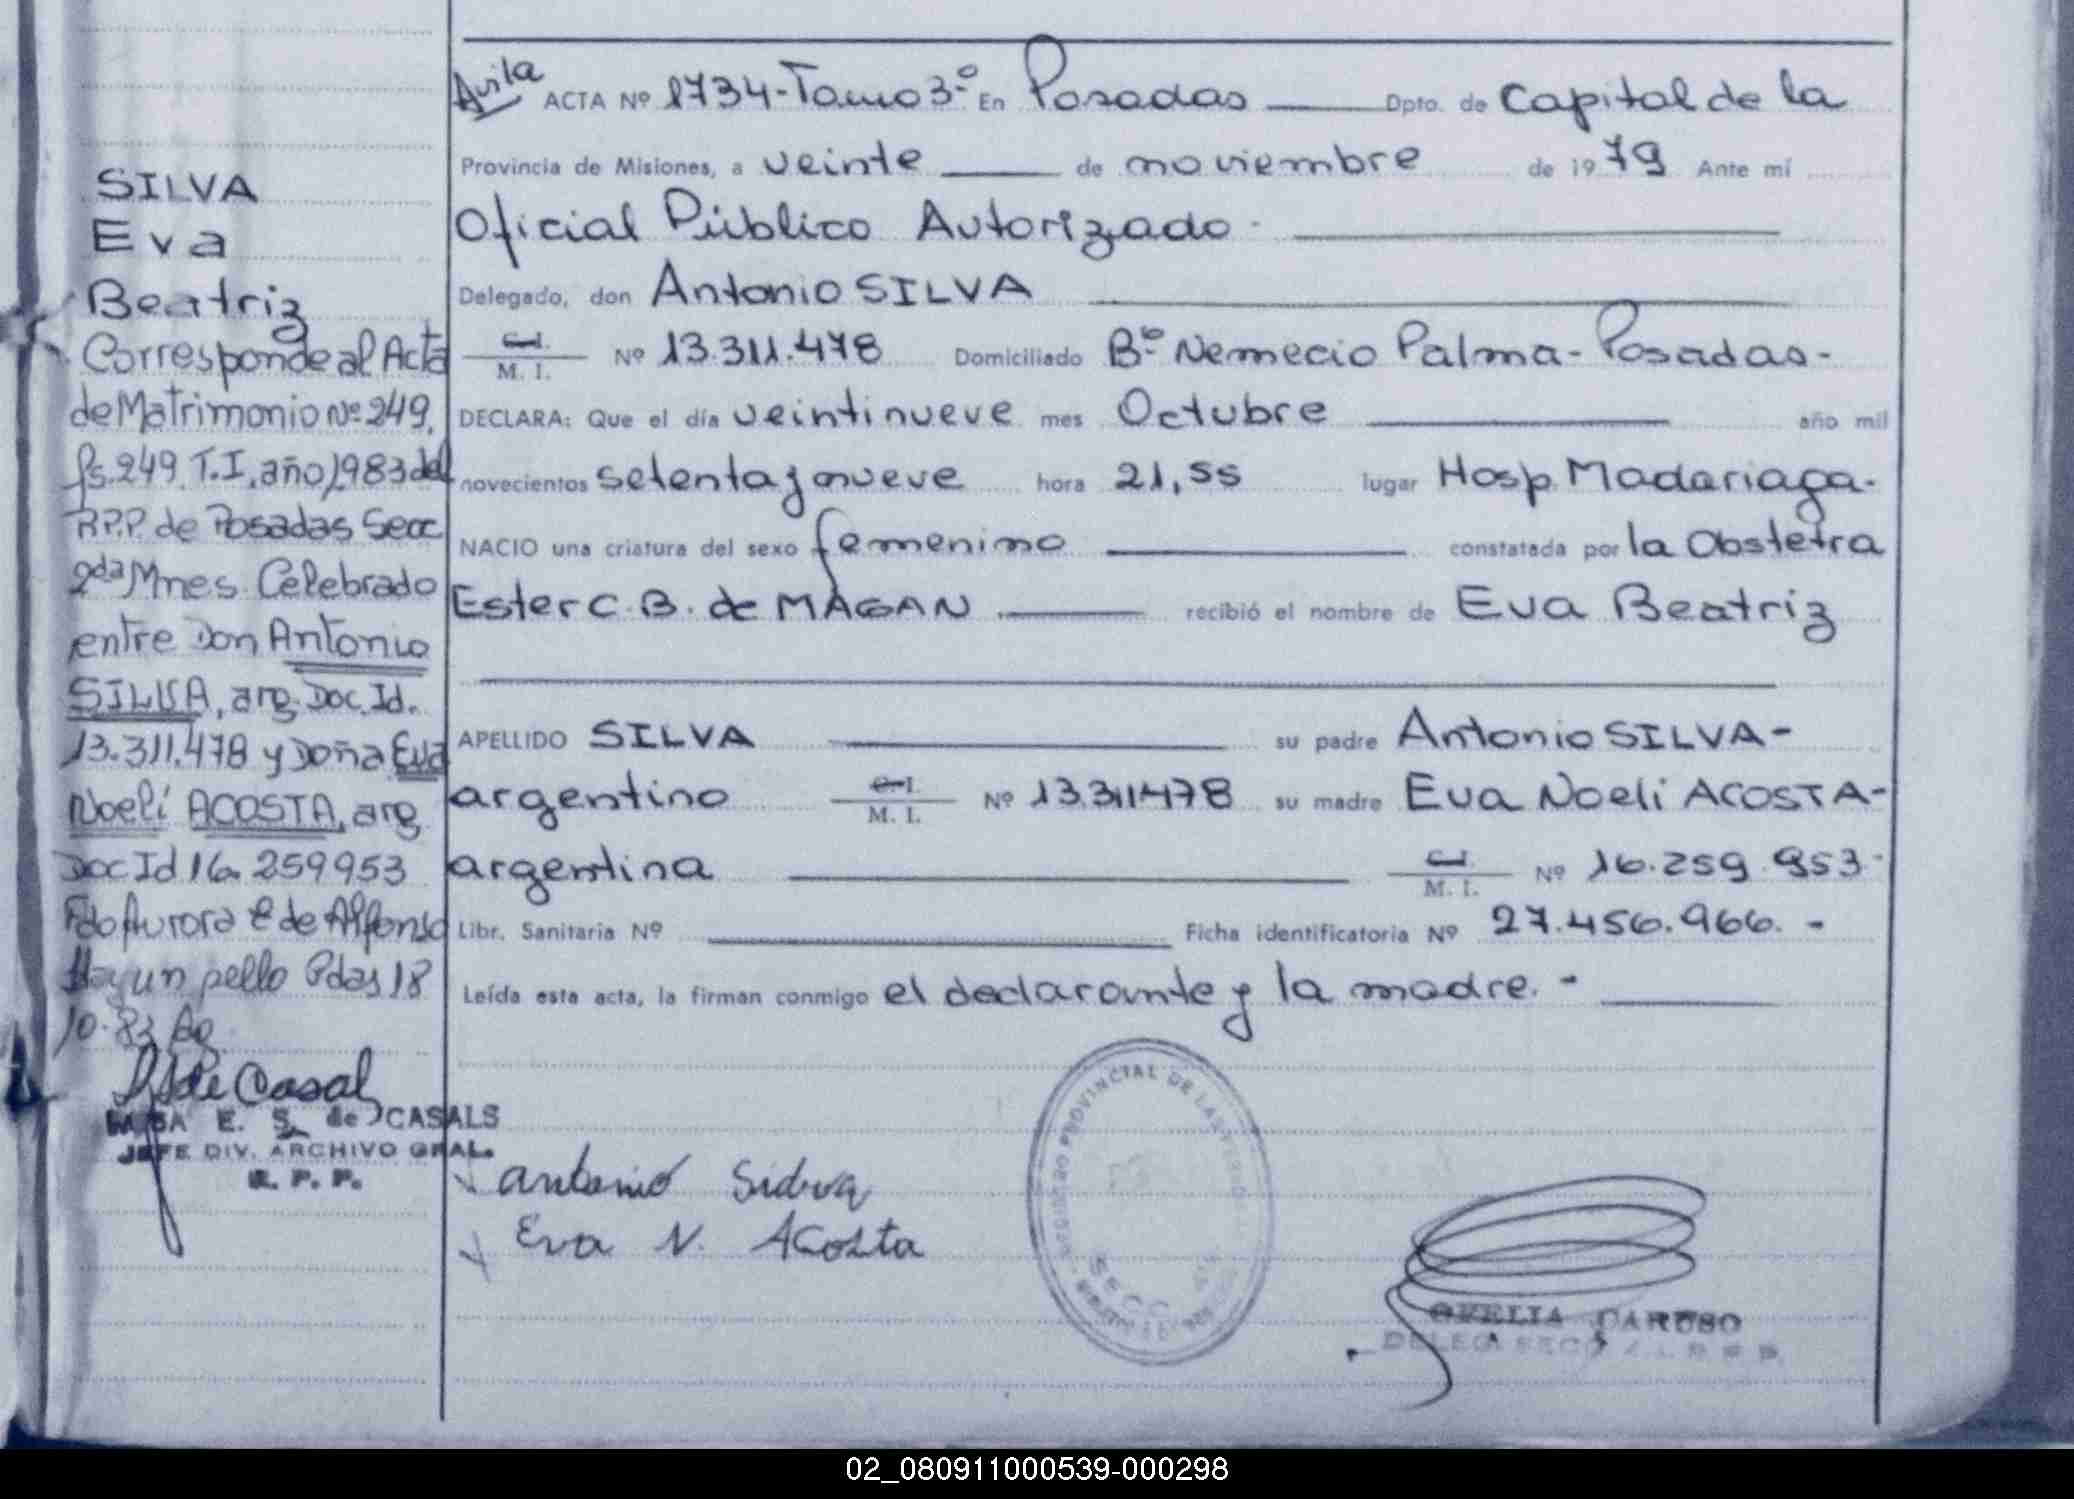 SILVA
Eva
Beatriz
Corresponde al Acta
de Matrimonio Nº 249,
fs. 249, T.I, año 1983 del
R.P.P. de Posadas Secc
2da Mnes. Celebrado
entre Don Antonio
SILVA, arg. Doc. Id.
13.311.478 y Doña Eva
Noelí ACOSTA, arg
Doc Id 16.259953
Fdo Aurora E de Alfonso
Hay un sello Pdas 18
10-83
E. S. de CASALS
JEFE DIV. ARCHIVO GRAL.
R. P. P.
Avila ACTA Nº 1734-Tomo 3º En Posadas Dpto. de Capital de la
Provincia de Misiones, a veinte de noviembre de 1979 Ante mí
Oficial Público Autorizado-
Delegado, don Antonio SILVA
C.I. M. I. Nº 13.311.478 Domiciliado Bº Nemecio Palma-Posadas-
DECLARA: Que el día veintinueve mes Octubre año mil
novecientos setenta y nueve hora 21,55 lugar Hosp. Madariaga-
NACIO una criatura del sexo femenino constatada por la Obstetra
Ester C. B. de MAGAN recibió el nombre de Eva Beatriz
APELLIDO SILVA su padre Antonio SILVA-
argentino C.I. M. I. Nº 13.311478 su madre Eva Noelí ACOSTA-
argentina C.I. M. I. Nº 16.259.953-
Libr. Sanitaria Nº Ficha identificatoria Nº 27.456.966.-
Leída esta acta, la firman conmigo el declarante y la madre.-
antonio Silva
Eva N. Acosta
PROVINCIAL DE LAS
SECC
OFELIA CARUSO
DELEG. SECC
02_080911000539-000298